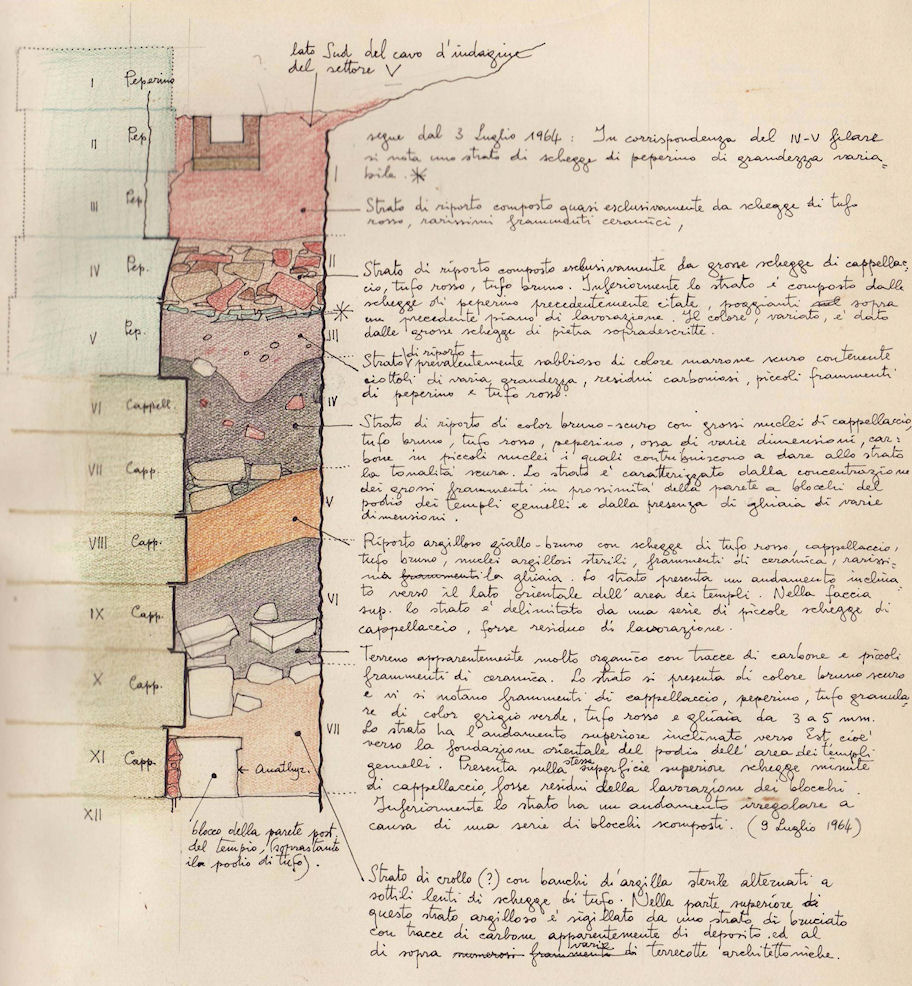 lato Sud del cavo d'indagine
del settore V
I Peperino
II Pep.
III Pep.
IV Pep.
V Pep.
VI Cappell.
VII Capp.
VIII Capp.
IX Capp.
X Capp.
XI Capp.
XII
I
II
III
IV
V
VI
VII
← Anathyr.
blocco della parete post.
del tempio, (soprastante
il podio di tufo).
segue dal 3 Luglio 1964 : In corrispondenza del IV-V filare
si nota uno strato di schegge di peperino di grandezza varia=
bile. *
Strato di riporto composto quasi esclusivamente da schegge di tufo
rosso, rarissimi frammenti ceramici,
Strato di riporto composto esclusivamente da grosse schegge di cappellac=
cio, tufo rosso, tufo bruno. Inferiormente lo strato è composto dalle
schegge di peperino precedentemente citate, poggianti sopra
un precedente piano di lavorazione. Il colore, variato, è dato
dalle grosse schegge di pietra sopradescritte.
*
Strato di riporto prevalentemente sabbioso di colore marrone scuro contenente
ciottoli di varia grandezza, residui carboniosi, piccoli frammenti
di peperino e tufo rosso.
Strato di riporto di color bruno-scuro con grossi nuclei di cappellaccio,
tufo bruno, tufo rosso, peperino, ossa di varie dimensioni, car=
bone in piccoli nuclei i quali contribuiscono a dare allo strato
la tonalità scura. Lo strato è caratterizzato dalla concentrazione
dei grossi frammenti in prossimità della parete a blocchi del
podio dei templi gemelli e dalla presenza di ghiaia di varie
dimensioni.
Riporto argilloso giallo-bruno con schegge di tufo rosso, cappellaccio,
tufo bruno, nuclei argillosi sterili, frammenti di ceramica, rarissi=
ma frammenti la ghiaia. Lo strato presenta un andamento inclina
to verso il lato orientale dell'area dei templi. Nella faccia
sup. lo strato è delimitato da una serie di piccole schegge di
cappellaccio, forse residuo di lavorazione.
Terreno apparentemente molto organico con tracce di carbone e piccoli
frammenti di ceramica. Lo strato si presenta di colore bruno scuro
e vi si notano frammenti di cappellaccio, peperino, tufo granula=
re di color grigio verde, tufo rosso e ghiaia da 3 a 5 mm.
Lo strato ha l'andamento superiore inclinato verso Est cioè
verso la fondazione orientale del podio dell'area dei templi
gemelli. Presenta sulla stessa superficie superiore schegge minute
di cappellaccio, fosse residui della lavorazione dei blocchi.
Inferiormente lo strato ha un andamento irregolare a
causa di una serie di blocchi scomposti. (9 Luglio 1964)
Strato di crollo (?) con banchi di argilla sterile alternati a
sottili lenti di schegge di tufo. Nella parte superiore di
questo strato argilloso è sigillato da uno strato di bruciato
con tracce di carbone apparentemente di deposito ed al
di sopra numerosi frammenti di varie terrecotte architettoniche.